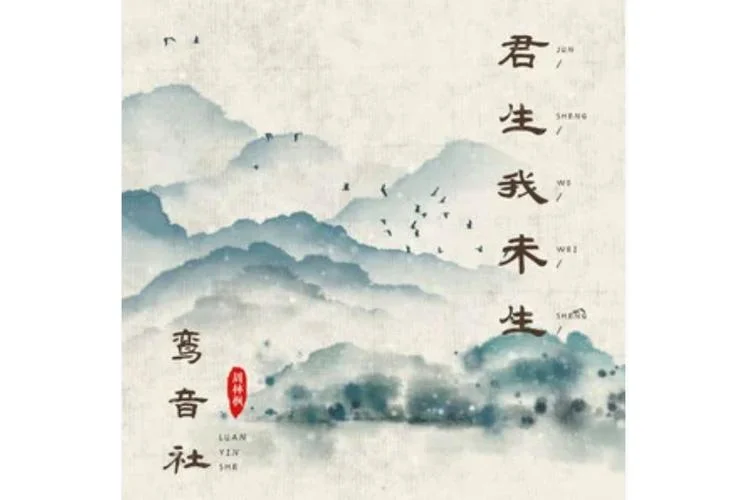 君生我未生
JUN
/
SHENG
/
WO
/
WEI
/
SHENG
/
鸾音社
LUAN
YIN
SHE
周林枫